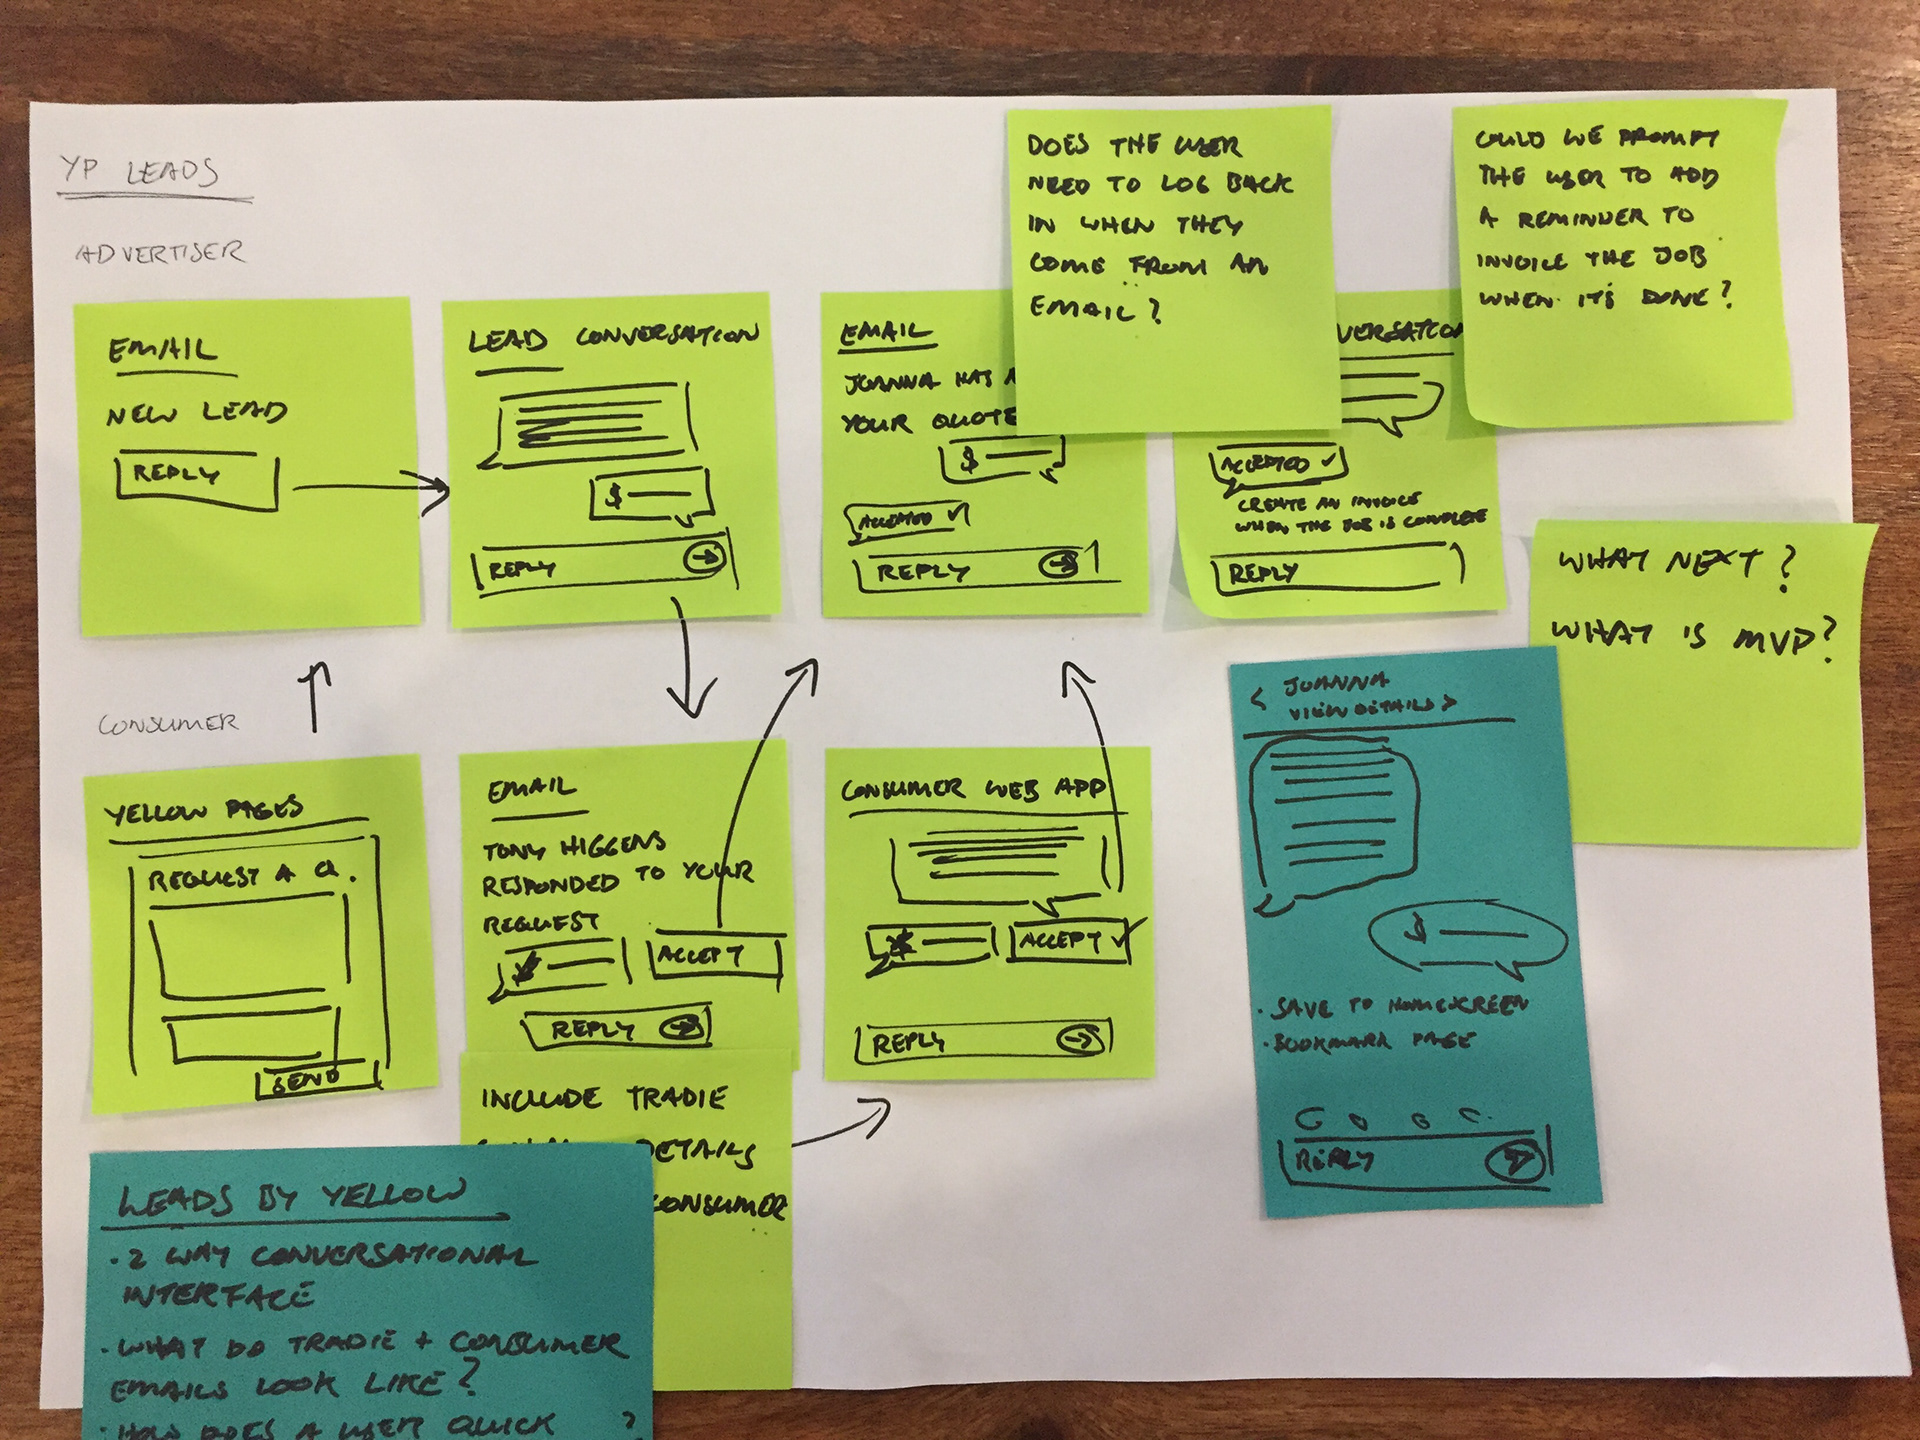 YP LEADS
ADVERTISER
EMAIL
NEW LEAD
REPLY
LEAD CONVERSATION
$
REPLY
EMAIL
JOANNA HAS
YOUR QUOTE
$
ACCEPTED ✓
REPLY
DOES THE USER
NEED TO LOG BACK
IN WHEN THEY
COME FROM AN
EMAIL?
VERSATION
ACCEPTED ✓
CREATE AN INVOICE
WHEN THE JOB IS COMPLETE
REPLY
COULD WE PROMPT
THE USER TO ADD
A REMINDER TO
INVOICE THE JOB
WHEN IT'S DONE?
WHAT NEXT?
WHAT IS MVP?
CONSUMER
YELLOW PAGES
REQUEST A Q.
SEND
EMAIL
TONY HIGGENS
RESPONDED TO YOUR
REQUEST
ACCEPT
REPLY
INCLUDE TRADIE
DETAILS
CONSUMER
CONSUMER WEB APP
ACCEPT ✓
REPLY
< JOANNA
VIEW DETAILS >
$
· SAVE TO HOMESCREEN
· BOOKMARK PAGE
REPLY
LEADS BY YELLOW
· 2 WAY CONVERSATIONAL
INTERFACE
· WHAT DO TRADIE + CONSUMER
EMAILS LOOK LIKE?
· HOW DOES A USER QUICK ?